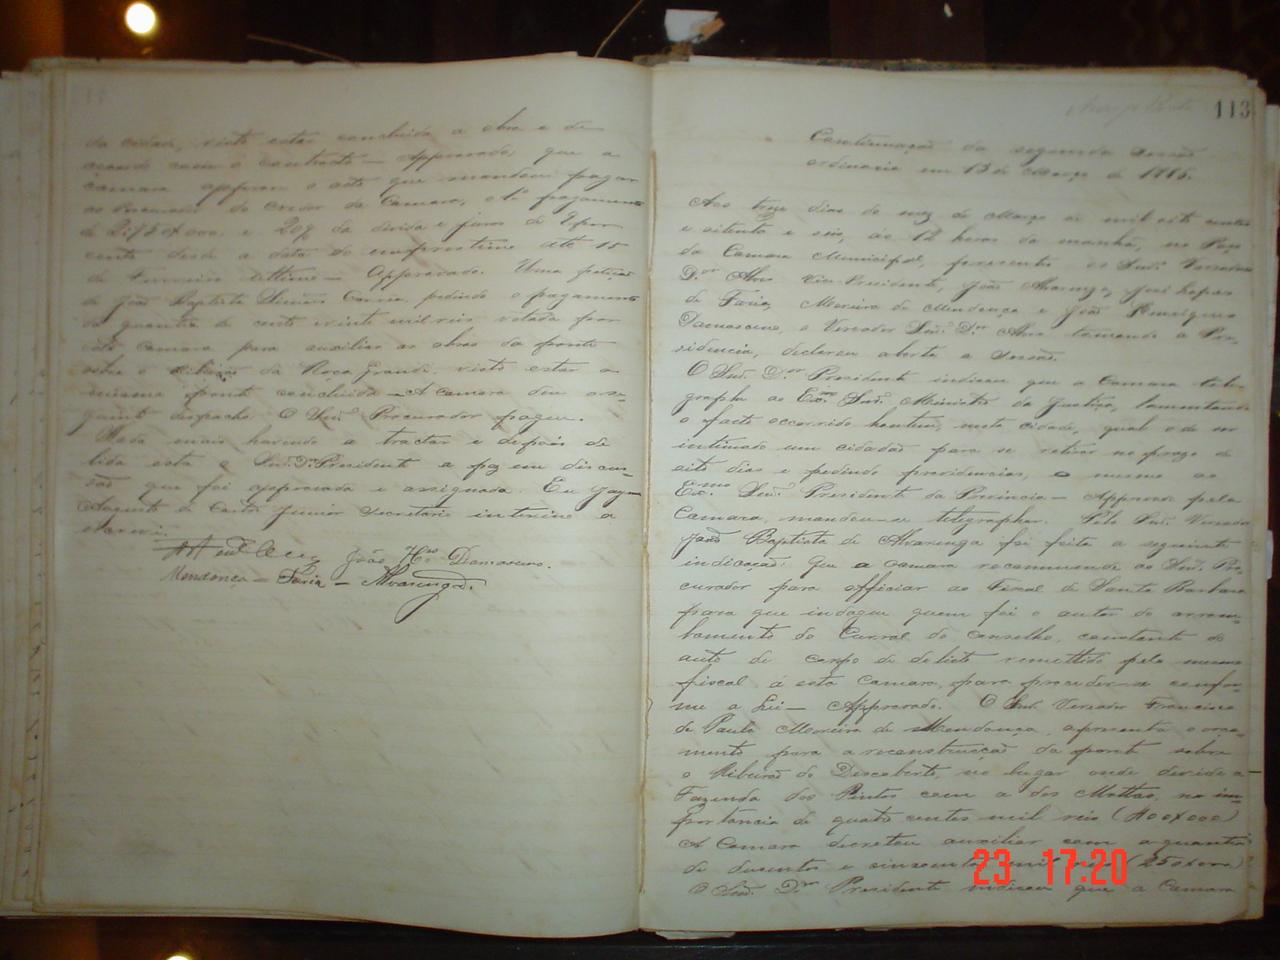 da cidade, visto estar concluida a obra e de
acordo com o contracto — Approvado, que a
camara approve o acto que mandou pagar
ao Procurador do credor da Camara, o 1º pagamento
de e 20% da divida e juros de 9 por
cento desde a data do emprestimo até 15
de Fevereiro ultimo — Approvado. Uma petição
de João Baptista Correia, pedindo o pagamento
da quantia de cento e vinte mil reis votada por
esta camara para auxiliar as obras da ponte
sobre o ribeirão da Roça Grande, visto estar a
mesma ponte concluida — A camara deu o se-
guinte despacho O Snr. Procurador pague.
Nada mais havendo a tractar e depois de
lida esta o Snr. Dr. Presidente a poz em discus-
são que foi approvada e assignada. Eu
Augusto de Castro Junior Secretario interino a
escrevi.
João Damasceno.
Mendonça — Faria — Alvarenga.
113
Continuação da segunda sessão
ordinaria em 13 de Março de 1886.
Aos treze dias do mez de Março de mil oito centos
e oitenta e seis, ás 12 horas da manhã, no Paço
da Camara Municipal, presentes os Snrs. Vereadores
Dr. Alves Vice-Presidente, João Alvarenga, José Lopes
de Faria, Moreira de Mendonça e João Henriques
Damasceno, o Vereador Snr. Dr. Alves tomando a Pre-
sidencia, declarou aberta a sessão.
O Snr. Dr. Presidente indicou que a Camara tele-
graphe ao Exmo. Snr. Ministro da Justiça, lamentando
o facto occorrido hontem, nesta cidade, qual o de ser
intimado um cidadão para se retirar no prazo de
oito dias e pedindo providencias, o mesmo ao
Exmo. Snr. Presidente da Provincia — Approvado pela
Camara, mandou-se telegraphar. Pelo Snr. Vereador
João Baptista de Alvarenga foi feita a seguinte
indicação: Que a camara recommende ao Snr. Pro-
curador para officiar ao Fiscal de Santa Barbara
para que indague quem foi o autor do arrom-
bamento do Curral do conselho, constante do
auto de corpo de delicto remettido pelo mesmo
fiscal á esta Camara, para proceder-se confor-
me a Lei — Approvado. O Snr. Vereador Francisco
de Paula Moreira de Mendonça, apresenta o orça-
mento para a reconstrucção da ponte sobre
o Ribeirão do Descoberto, no lugar onde divide a
Fazenda dos Pintos com a dos Mattos, na im-
portancia de quatro centos mil reis (400$000)
A Camara decretou auxiliar com a quantia
de dusentos e sincoenta mil reis (250$000)
O Snr. Dr. Presidente indicou que a Camara
23 17:20